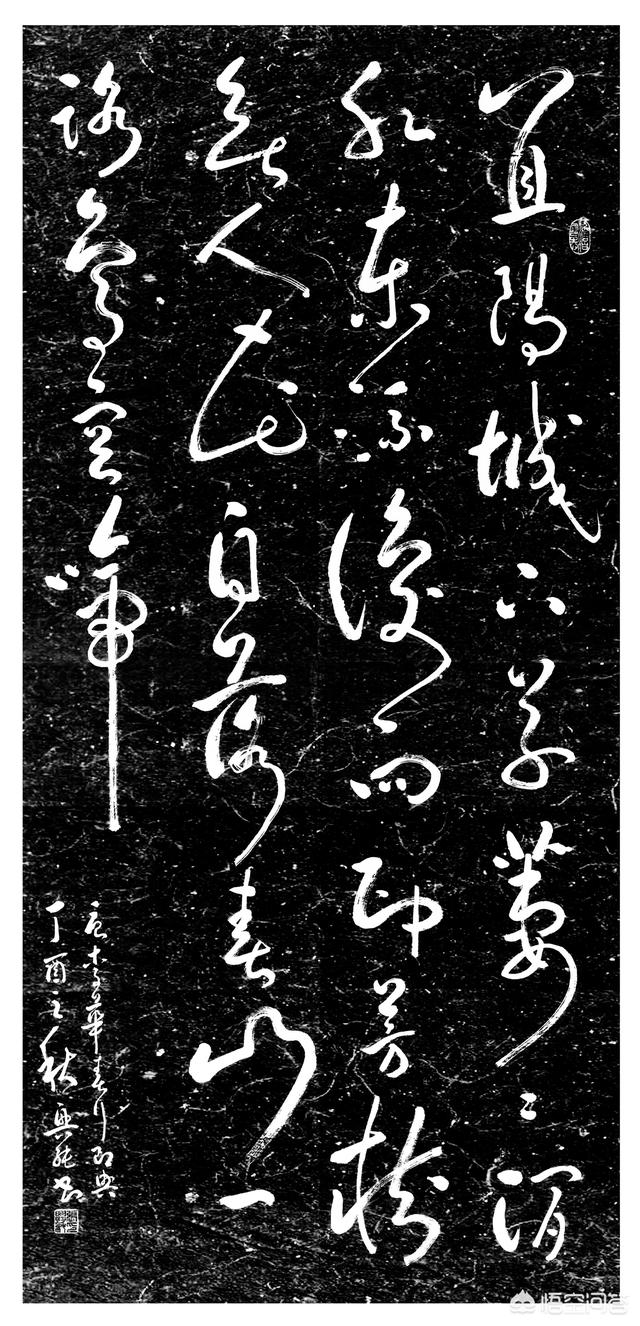 宜陽城下草萋〻澗
水東流復向西芳樹
無人花自落春山一
路鳥空啼
唐李華春行即興
丁酉之秋
悟空问答